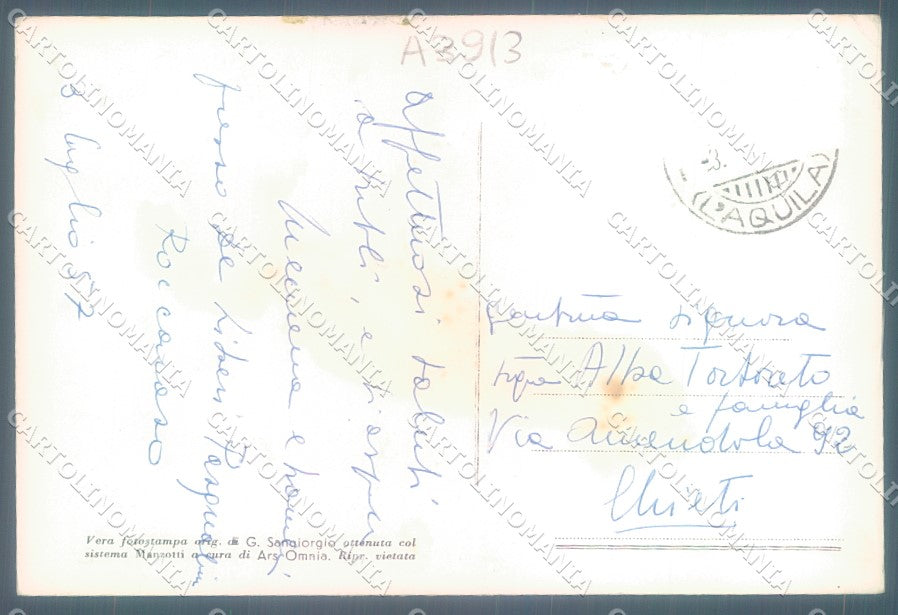 A3913
affettuosi saluti
a tutti, e vi aspetto
Mecciena e nonni
presso De Litori Pasqualin
Roccaraso
3 luglio 57
8.
(L'AQUILA)
Gentma signora
sigra Alba Tortorato
e famiglia
Via Amendola 92
Chieti
Vera fotostampa orig. di G. Sangiorgio ottenuta col
sistema Manzotti a cura di Ars Omnia. Ripr. vietata
CARTOLINOMANIA